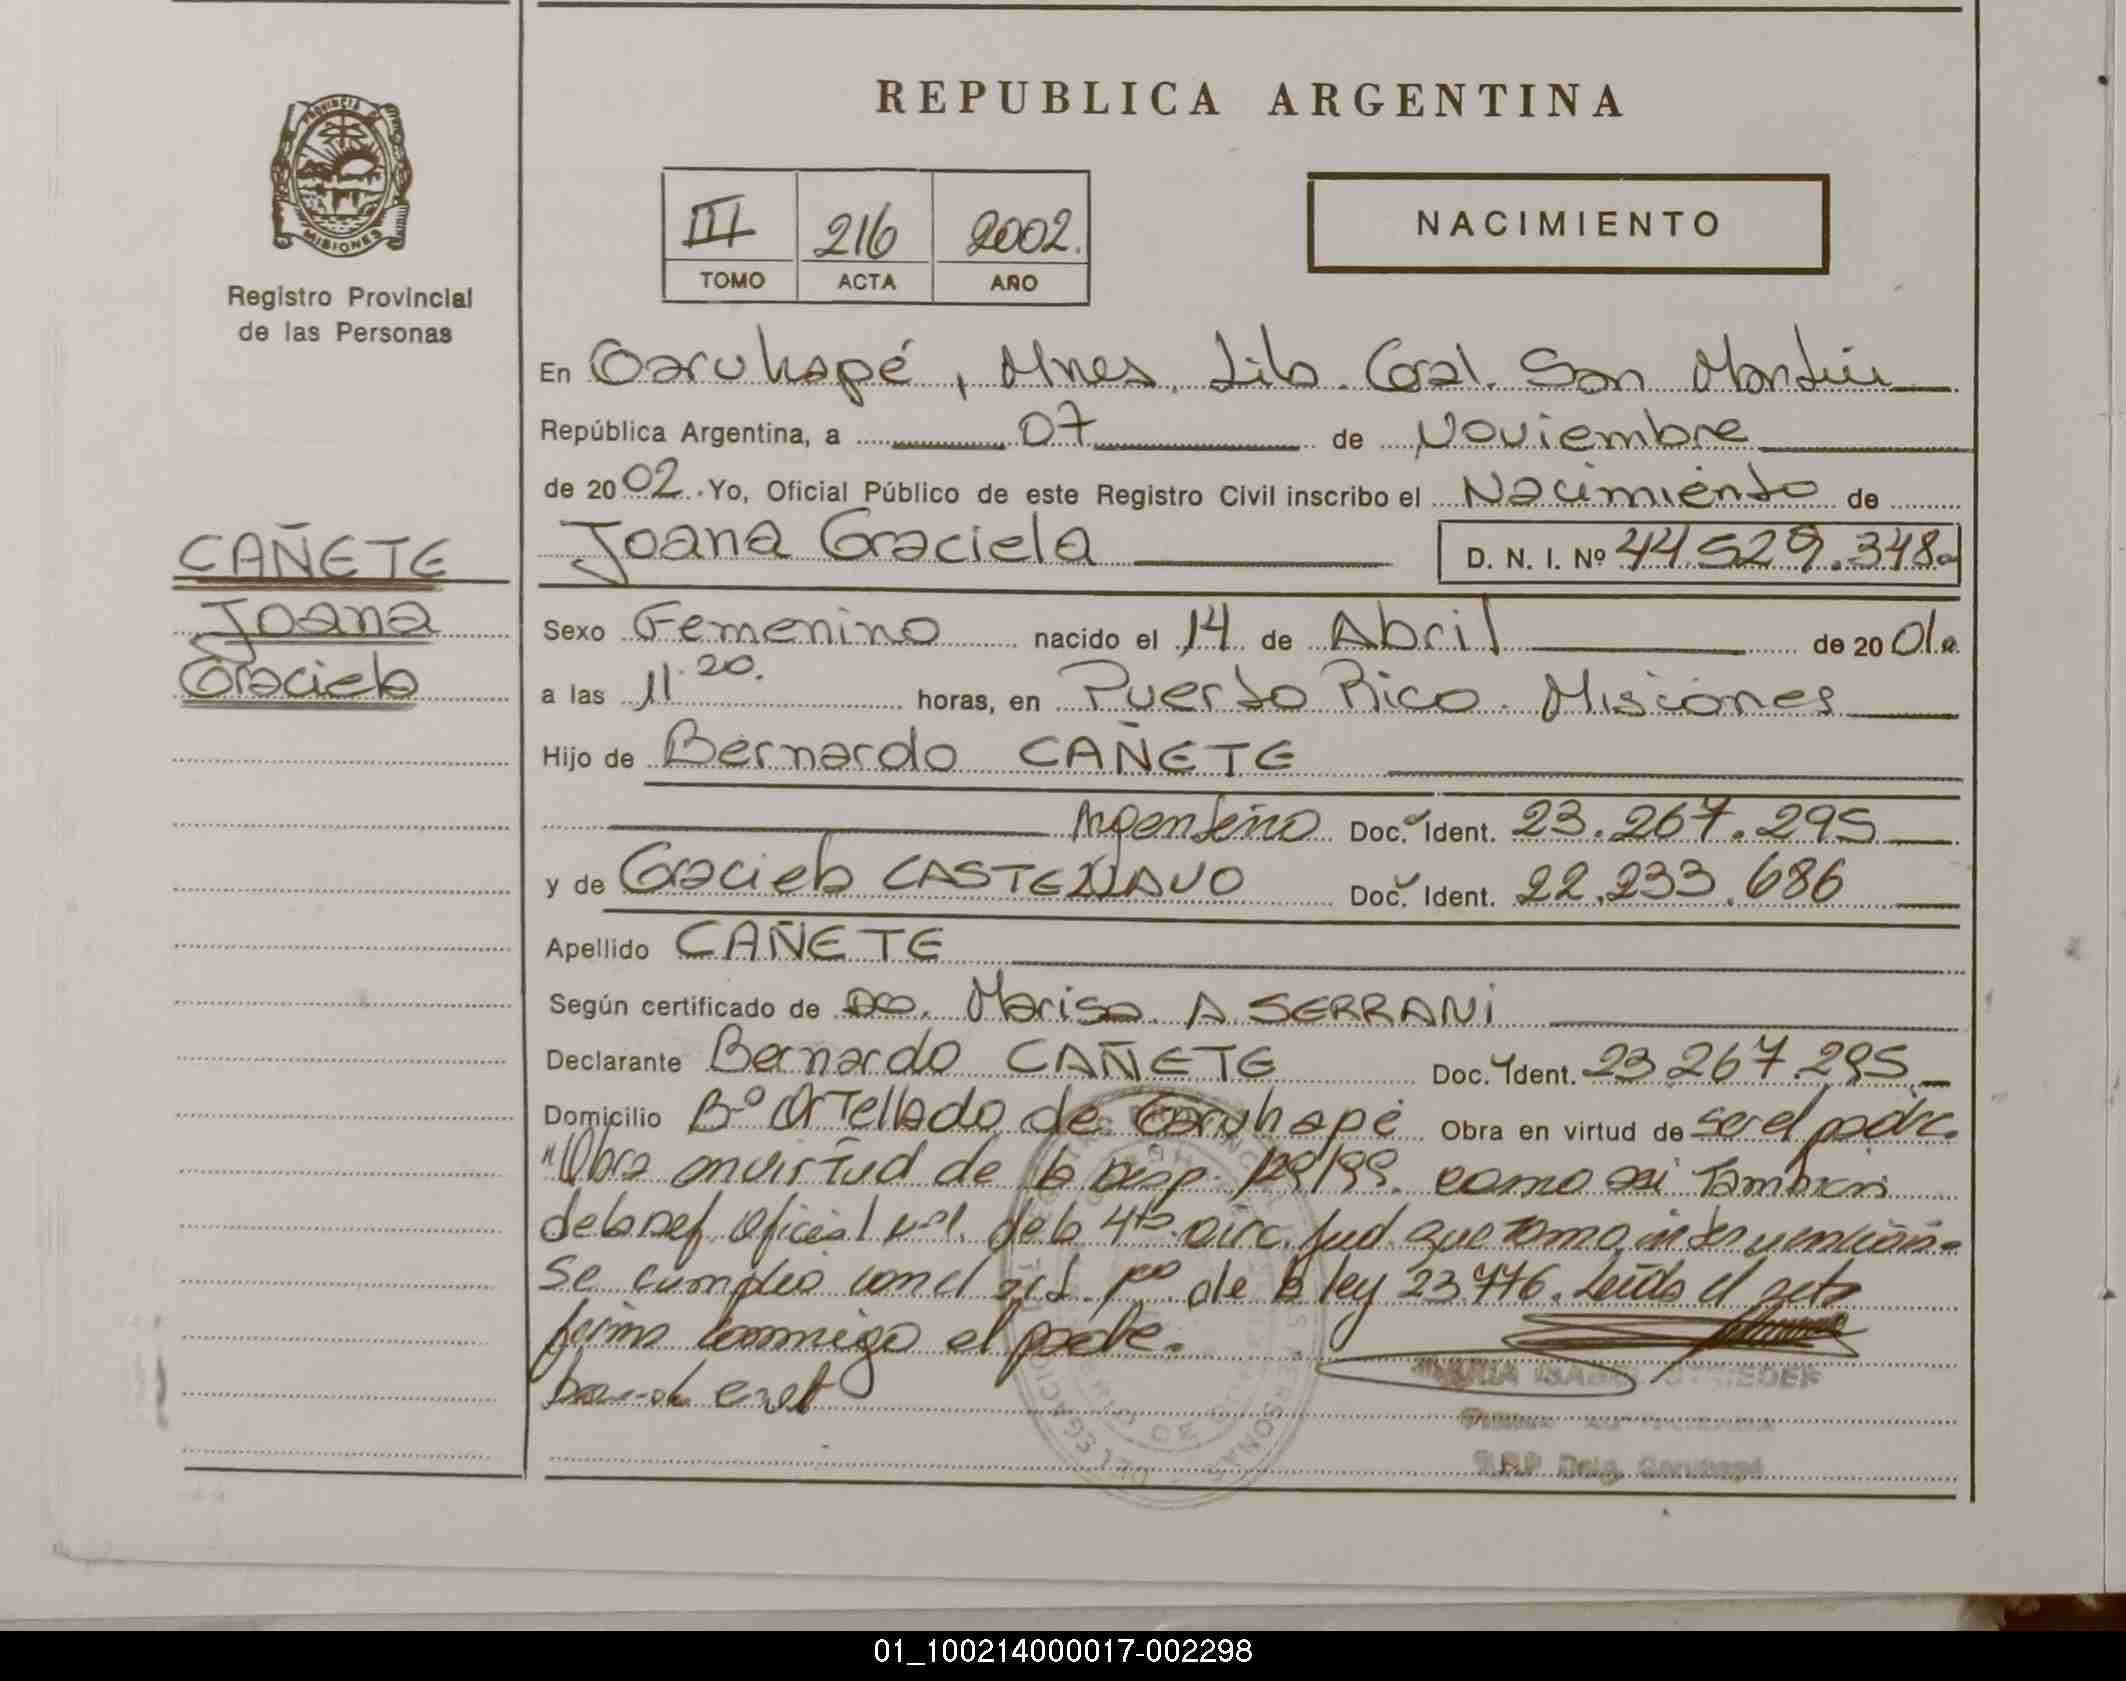 REPUBLICA ARGENTINA
PROVINCIA DE
MISIONES
Registro Provincial
de las Personas
III 216 2002.
TOMO ACTA AÑO
NACIMIENTO
CAÑETE
Joana
Graciela
En Garuhapé, Mnes, Lib. Gral. San Martín
República Argentina, a 07 de Noviembre
de 2002. Yo, Oficial Público de este Registro Civil inscribo el Nacimiento de
Joana Graciela D. N. I. Nº 44.529.348
Sexo Femenino nacido el 14 de Abril de 2001
a las 11.20. horas, en Puerto Rico Misiones
Hijo de Bernardo CAÑETE
Argentino Doc. Ident. 23.267.295
y de Graciela CASTELLANO Doc. Ident. 22.233.686
Apellido CAÑETE
Según certificado de Marisa A. SERRANI
Declarante Bernardo CAÑETE Doc. Ident. 23.267.295
Domicilio Bº Ortellado de Garuhapé Obra en virtud de ser el padre.
"Obra en virtud de la Disp. 129/99. como asi Tambien
de la Def. Oficial de la 4ta. Circ. Jud. que tomo intervención
Se cumplio con el art. 1º de la ley 23.776. Leída el acta
firma conmigo el padre.
MARIA ISABEL
R.P.P. Deleg. Garuhapé
01_100214000017-002298